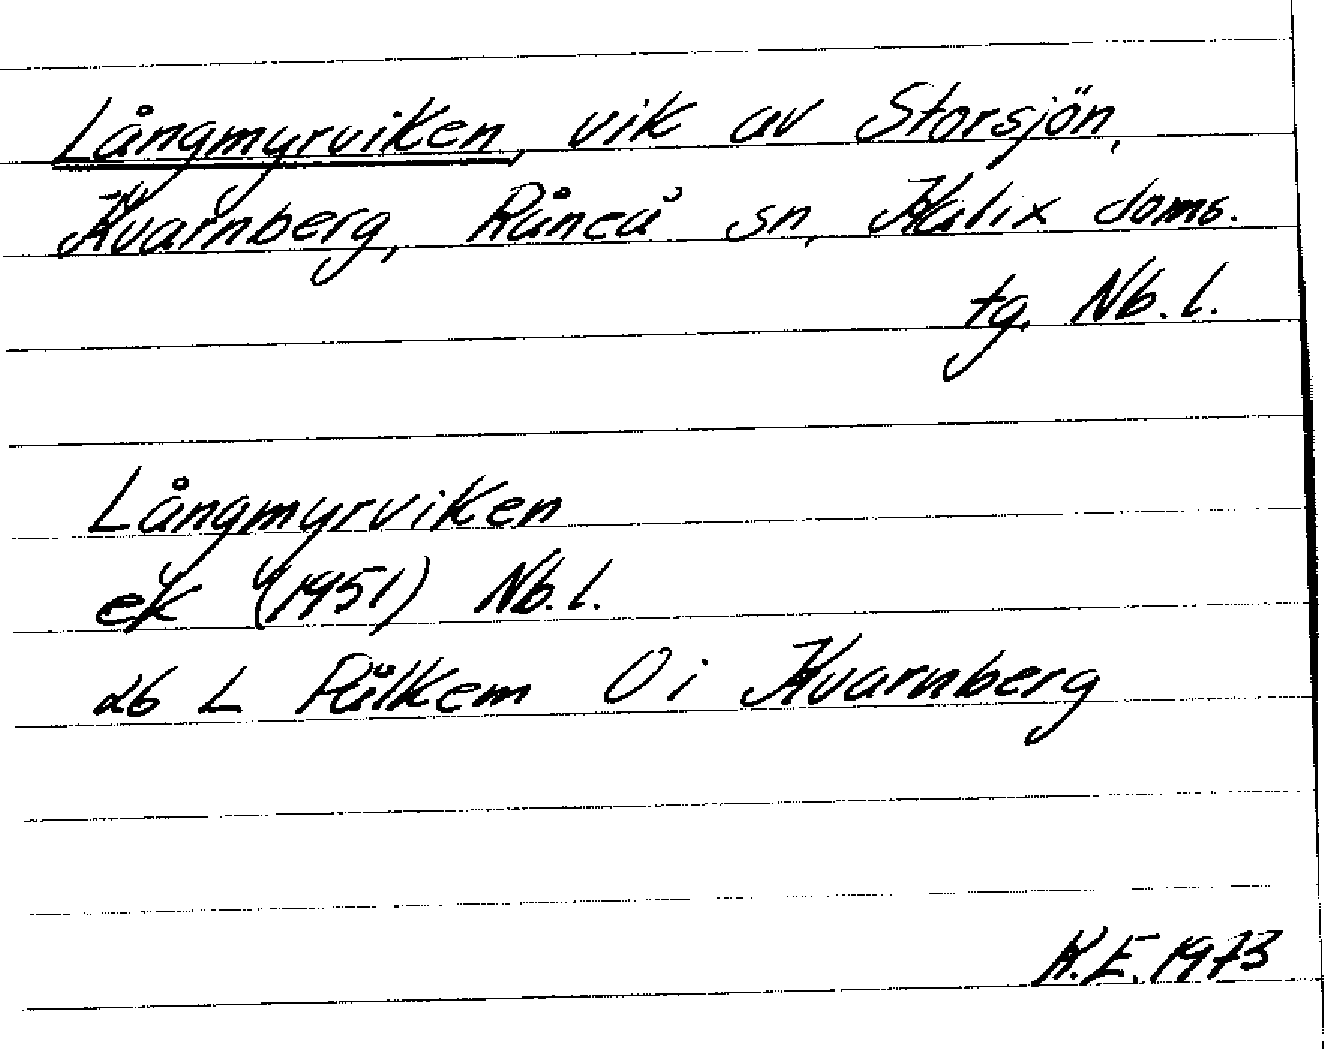 Långmyrviken, vik av Storsjön,
Kvarnberg, Råneå sn, Kalix doms.
tg, Nb.l.
Långmyrviken
ek (1951) Nb.l.
26 L Pålkem Ö i Kvarnberg
K.E. 1973